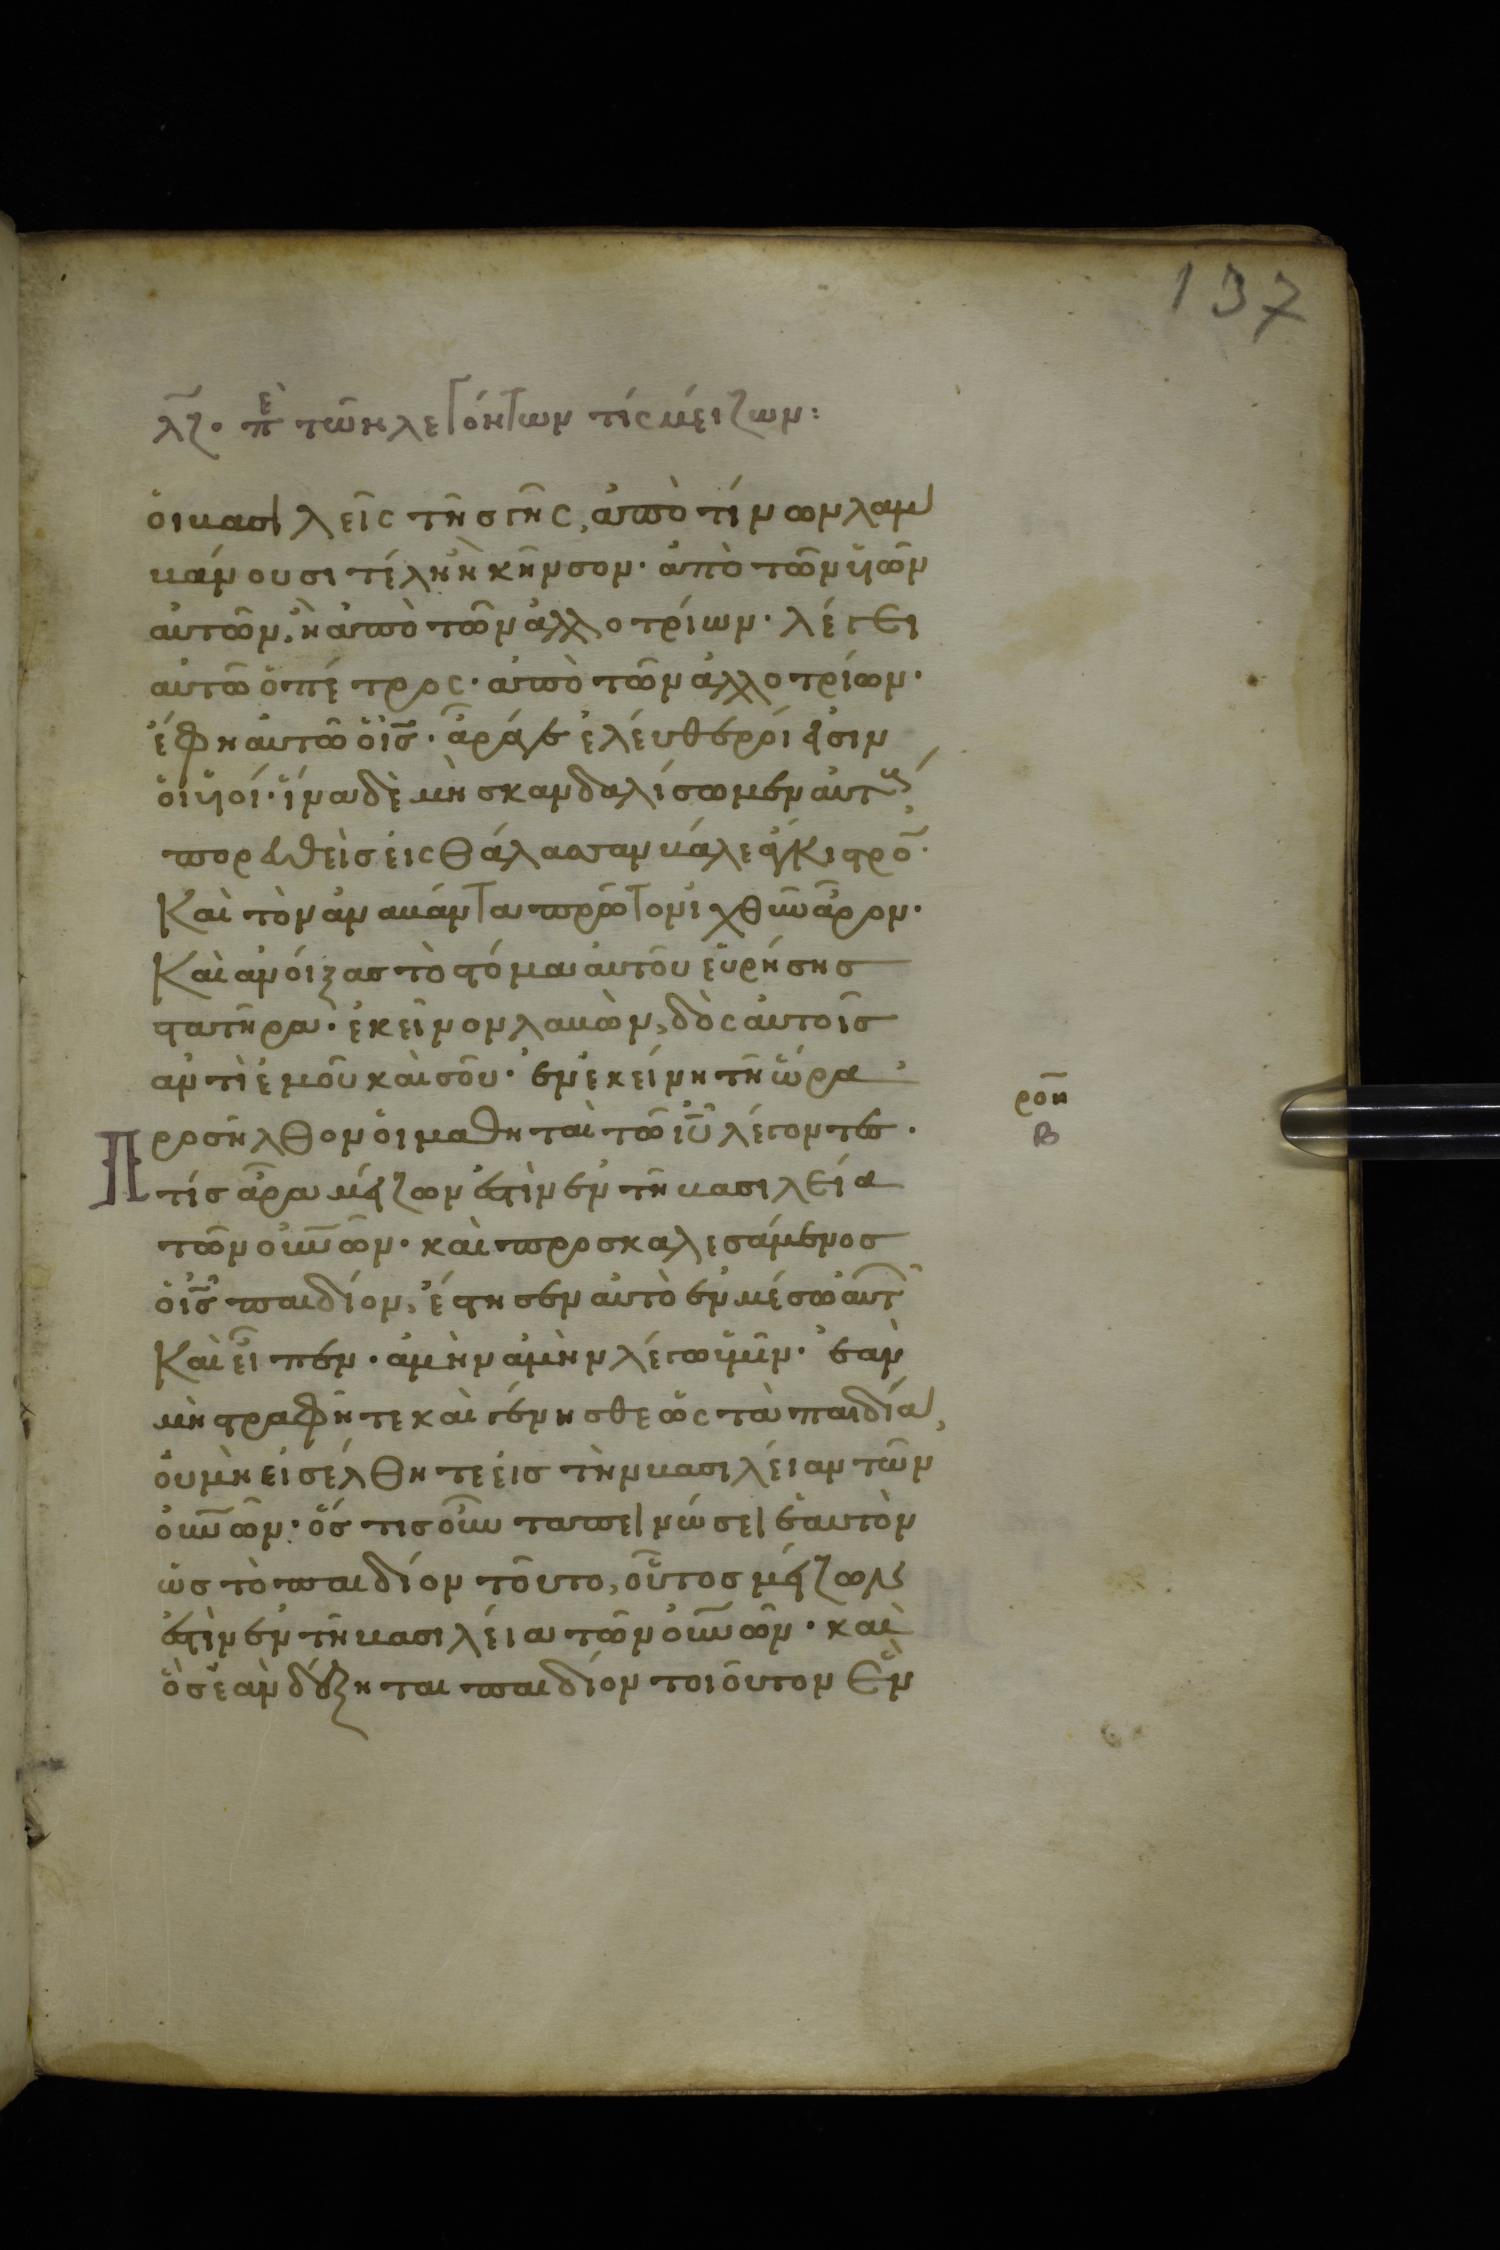 137
λζ· πε τῶν λεγόντων τίς μείζων:
ὁι βασιλεῖς τῆς γῆς, ἀπὸ τίνων λαμ
βάνουσι τέλη ἢ κῆνσον· ἀπὸ τῶν ὑιῶν
ἀυτῶν, ἢ ἀπὸ τῶν ἀλλοτρίων· λέγει
ἀυτῶ ὁ πέτρος· ἀπὸ τῶν ἀλλοτρίων·
ἔφη ἀυτῶ ὁ ις̅· ἄραγε ἐλέυθεροί εἰσιν
ὁι ὑιοί· ἵνα δὲ μὴ σκανδαλίσωμεν ἀυτούς,
πορευθεὶς εἰς θάλασσαν βάλε ἄγκιστρο̅·
Καὶ τὸν ἀναβάντα πρῶτον ἰχθῦν ἆρον·
Καὶ ἀνόιξας τὸ στόμα ἀυτοῦ ἑυρήσης
στατῆρα· ἐκεῖνον λαβὼν, δὸς ἀυτοῖς
ἀντὶ ἐμοῦ καὶ σοῦ· ἐν ἐκείνη τῆ ὥρα
ροη
β
Προσῆλθον ὁι μαθηταὶ τῶ ιυ̅ λέγοντες·
τίς ἄρα μείζων ἐστὶν ἐν τῆ βασιλεία
τῶν ουν̅ῶν· καὶ προσκαλεσάμενος
ὁ ις̅ παιδίον, ἔστησεν ἀυτὸ ἐν μέσω ἀυτ
Καὶ εἶπεν· ἀμὴν ἀμὴν λέγω ὑμῖν· ἐὰν
μὴ στραφῆτε καὶ γένησθε ὡς τὰ παιδία,
ὀυ μὴ εἰσέλθητε εἰς τὴν βασιλείαν τῶν
ουν̅ῶν· ὅστις οὖν ταπεινώσει ἑαυτὸν
ὡς τὸ παιδίον τοῦτο, οὗτος μείζων
ἐστὶν ἐν τῆ βασιλεία τῶν ουν̅ῶν· καὶ
ὃς ἐὰν δέξηται παιδίον τοιοῦτον ἓν